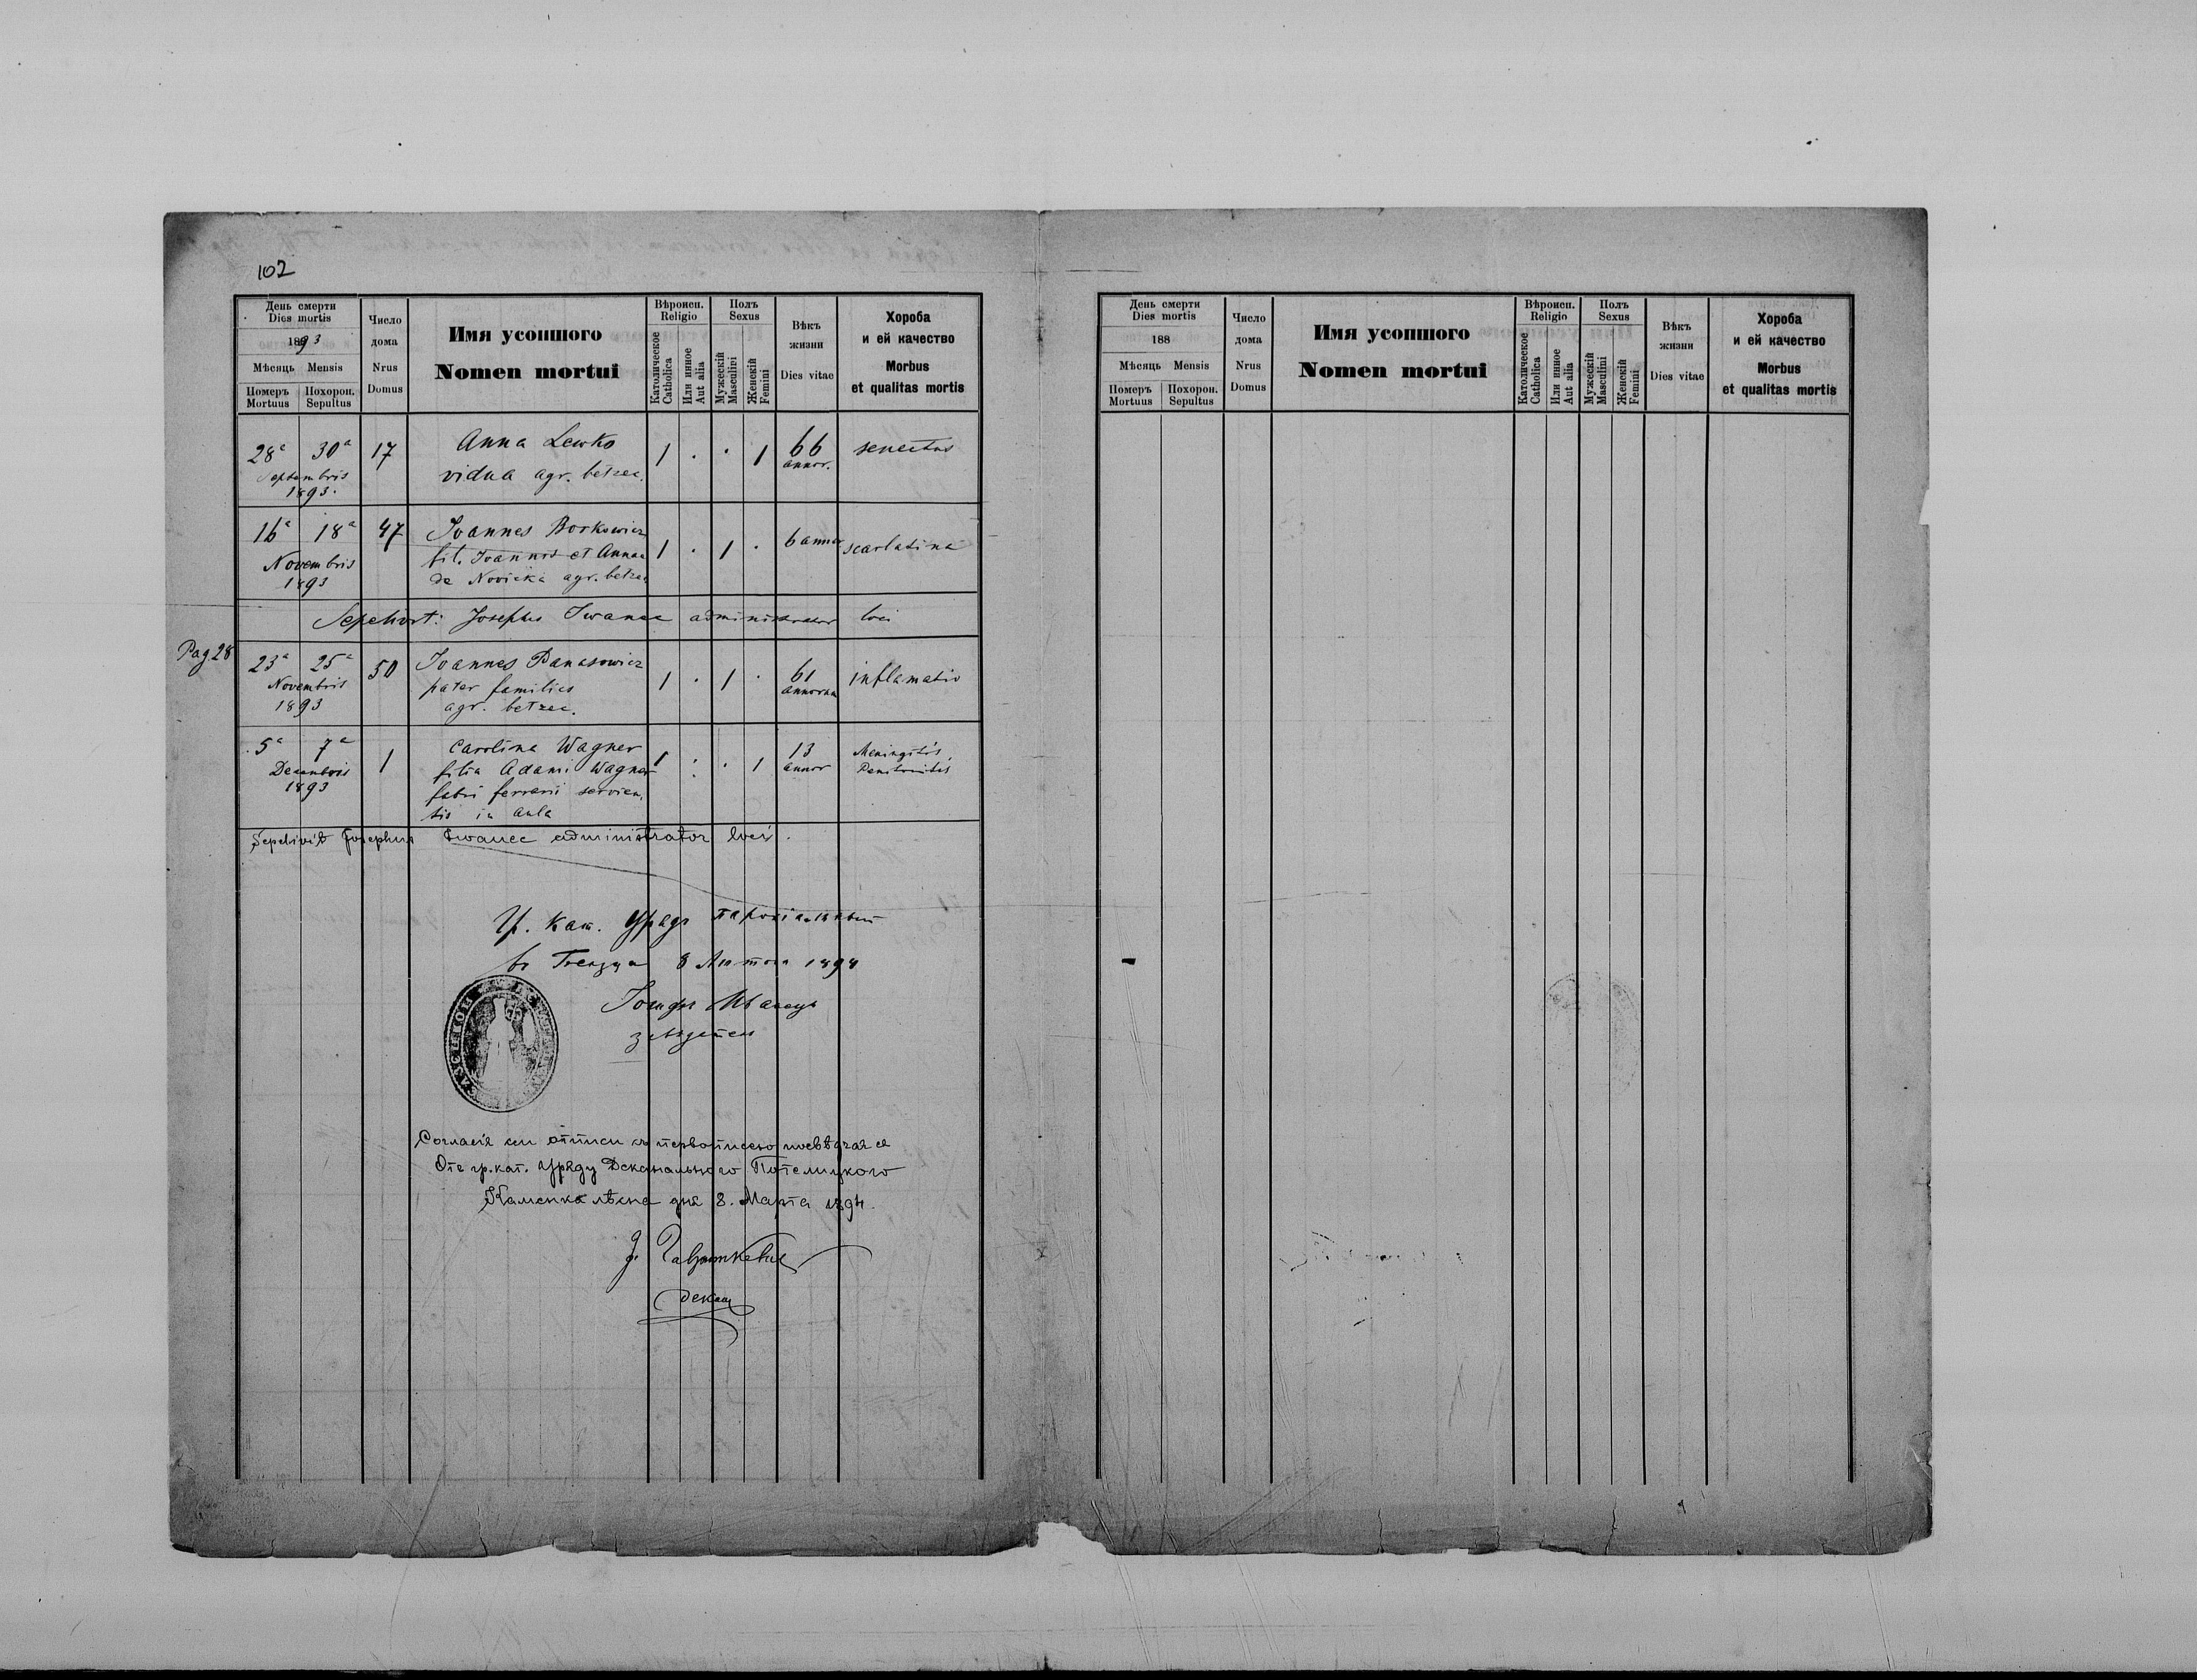 102
День смерти
Dies mortis
1893
Мѣсяць Mensis
Померъ Похорон.
Mortuus Sepultus
Число
дома
Nrus
Domus
Имя усопшого
Nomen mortui
Вѣроисп.
Religio
Католическое
Catholica
Или инное
Aut alia
Полъ
Sexus
Мужескій
Masculini
Женскій
Femini
Вѣкъ
жизни
Dies vitae
Хороба
и ей качество
Morbus
et qualitas mortis
28ª 30ª 17 Anna Lewko 1 . . 1 66 senectus
Septembris vidua agr. betzec. annor.
1893.
16ª 18ª 47 Ioannes Borkowicz 1 . 1 . 6 annor scarlatina
Novembris fil. Ioannis et Annae
1893 de Novicka agr. betzec
Sepelivit: Josephus Iwanec administrator loci
Pag. 28
23ª 25ª 50 Ioannes Panasowicz 1 . 1 . 61 inflamatio
Novembris pater familias annorum
1893 agr. betzec.
5ª 7ª 1 Carolina Wagner 1 . . 1 13 Meningitis,
Decembris filia Adami Wagner annor
1893 fabri ferrarii servien,
tis in aula
Sepelivit Josephus Iwanec administrator loci.
Гр. кат. Урядъ парохіальный
8 Лютого 1894
Іосифъ Иванецъ
Согласіе сеи отписи съ первописею посвѣдчае ся
Отъ гр. кат. Уряду Деканального Потелицкого
Каменка лѣсна дня 8. Марта 1894.
декан
День смерти
Dies mortis
188
Мѣсяць Mensis
Померъ Похорон.
Mortuus Sepultus
Число
дома
Nrus
Domus
Имя усопшого
Nomen mortui
Вѣроисп.
Religio
Католическое
Catholica
Или инное
Aut alia
Полъ
Sexus
Мужескій
Masculini
Женскій
Femini
Вѣкъ
жизни
Dies vitae
Хороба
и ей качество
Morbus
et qualitas mortis